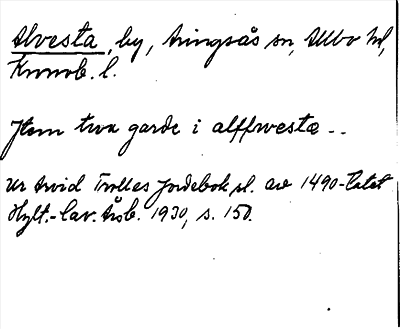 Alvesta, by, Aringsås sn, Allbo hd,
Kronob. l.
Jtem twa garde i alffwestæ --
Ur Arvid Trolles Jordebok, sl. av 1490-talet
Hylt.-Cav. Årsb. 1930, s. 150.